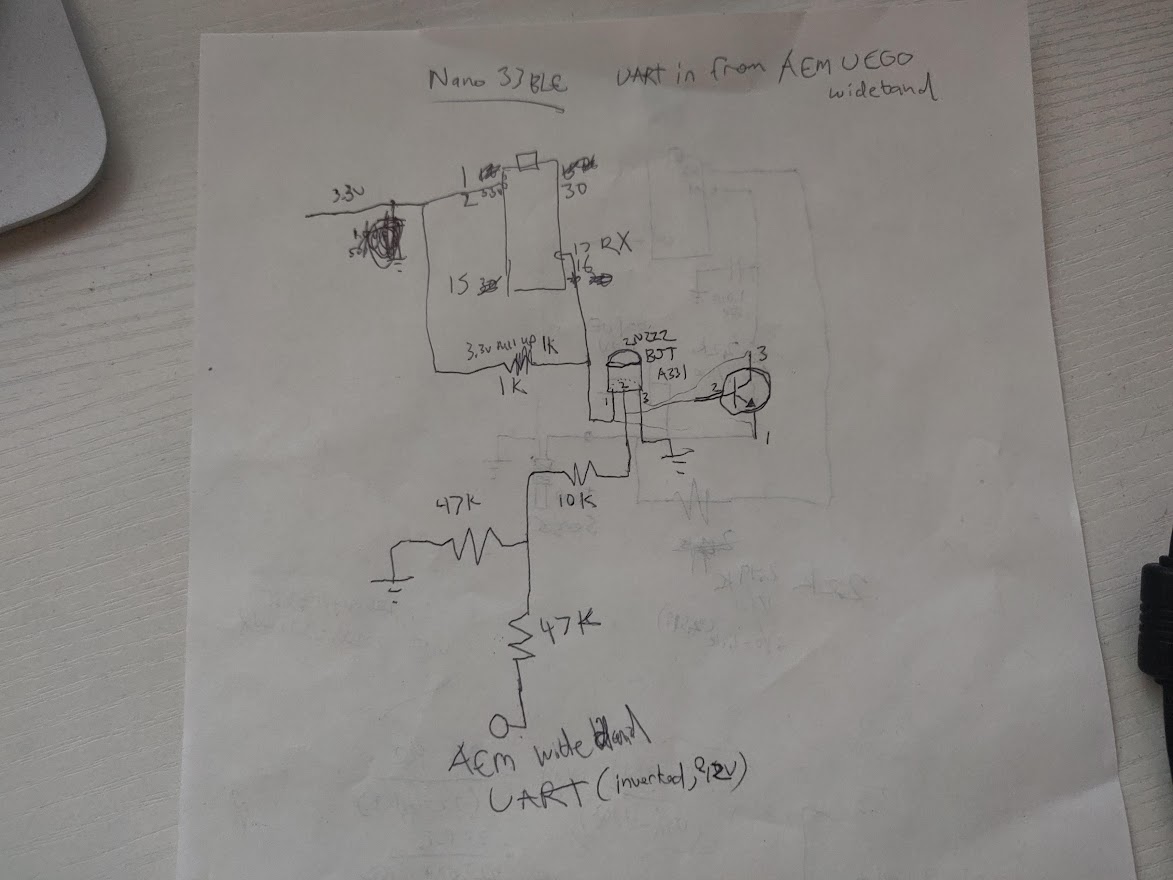 Nano 33 BLE
UART in from AEM UEGO
wideband
3.3v
1
2
30
17 RX
16
15
3.3v Pull up 1K
1K
2N222
BJT
A331
1
2
3
3
2
1
10K
47K
47K
AEM wideband
UART (inverted, 12V)